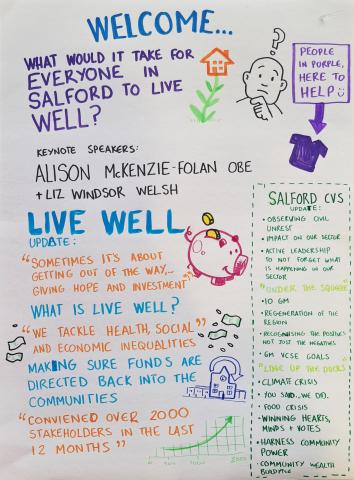 WELCOME...
WHAT WOULD IT TAKE FOR
EVERYONE IN
SALFORD TO LIVE
WELL?
?
PEOPLE
IN PURPLE,
HERE TO
HELP
KEYNOTE SPEAKERS:
ALISON McKENZIE-FOLAN OBE
+ LIZ WINDSOR WELSH
LIVE WELL
UPDATE:
"SOMETIMES IT'S ABOUT
GETTING OUT OF THE WAY...
GIVING HOPE AND INVESTMENT"
WHAT IS LIVE WELL?
"WE TACKLE HEALTH, SOCIAL
AND ECONOMIC INEQUALITIES"
MAKING SURE FUNDS ARE
DIRECTED BACK INTO THE
COMMUNITIES
"CONVIENED OVER 2000
STAKEHOLDERS IN THE LAST
12 MONTHS"
2000
SALFORD CVS
UPDATE:
• OBSERVING CIVIL
UNREST
• IMPACT ON OUR SECTOR
• ACTIVE LEADERSHIP
TO NOT FORGET WHAT
IS HAPPENING IN OUR
SECTOR
"UNDER THE
• 10 GM
• REGENERATION OF THE
REGION
• RECOGNISING THE POSITIVES
NOT JUST THE NEGATIVES
• GM VCSE GOALS
"LINE UP THE DUCKS"
• CLIMATE CRISIS
• YOU SAID... WE DID.
• FOOD CRISIS
• WINNING HEARTS,
MINDS + VOTES
• HARNESS COMMUNITY
POWER
• COMMUNITY WEALTH